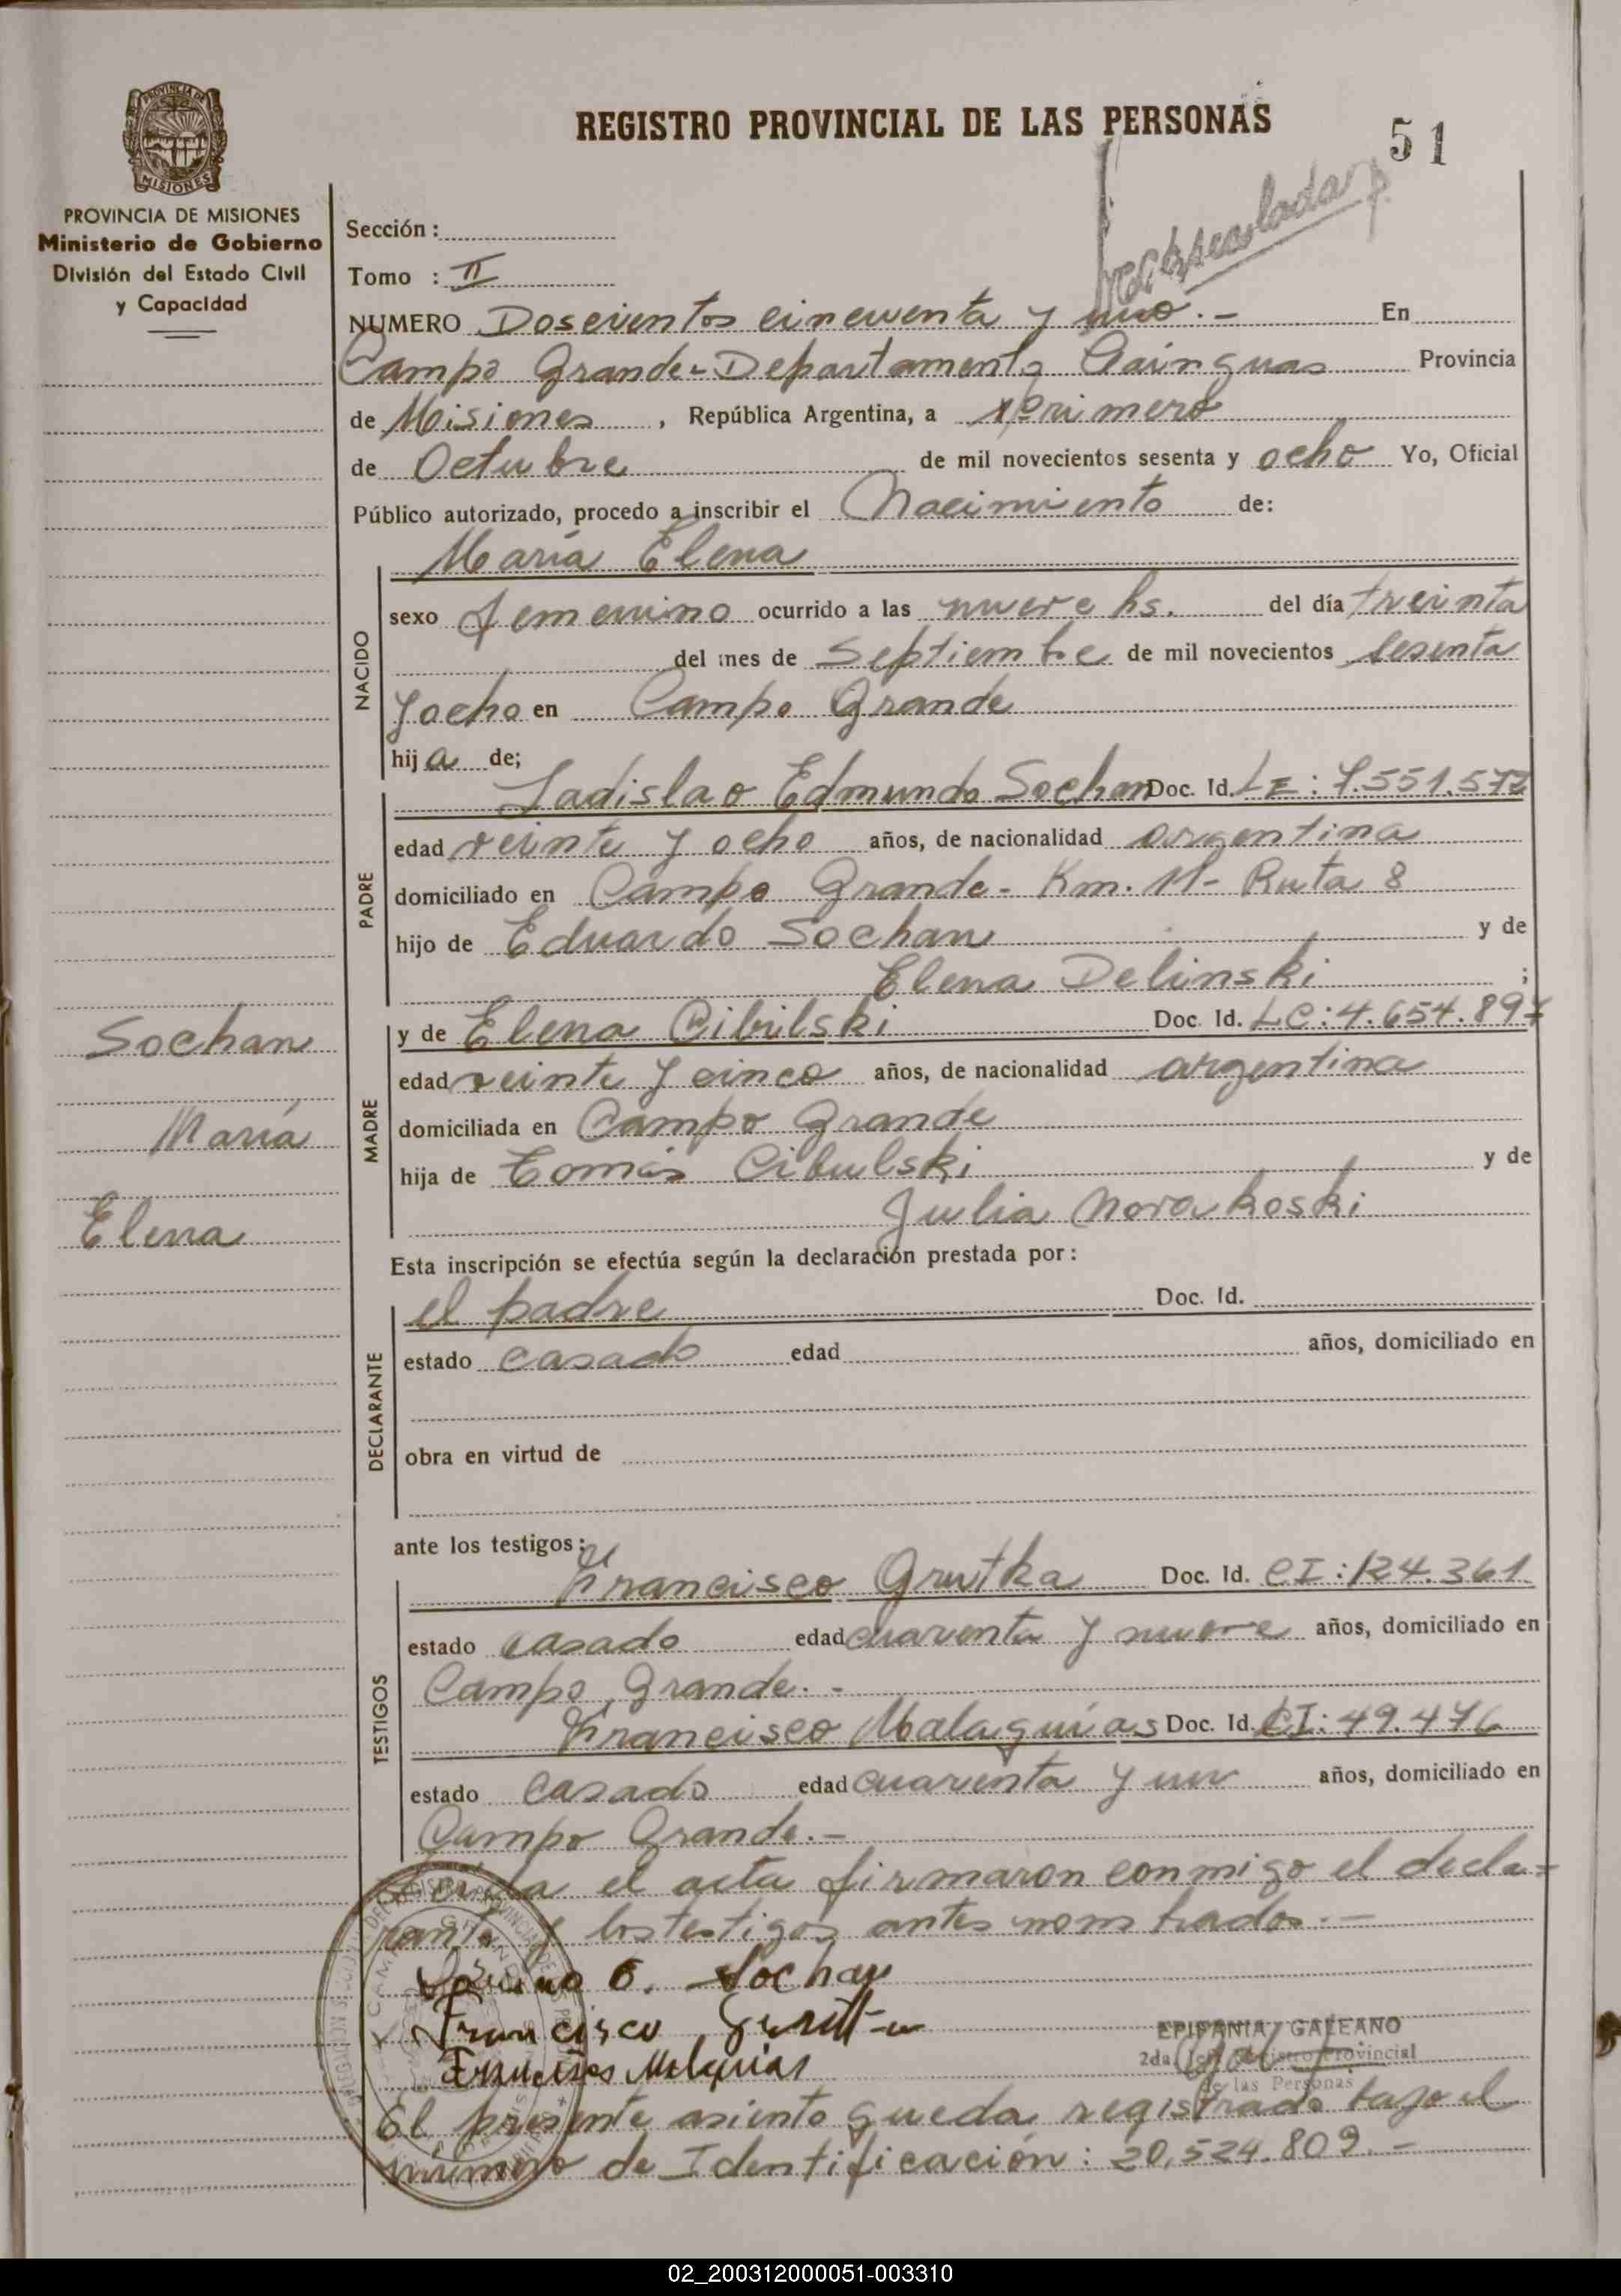 REGISTRO PROVINCIAL DE LAS PERSONAS
51
PROVINCIA DE
MISIONES
PROVINCIA DE MISIONES
Ministerio de Gobierno
División del Estado Civil
y Capacidad
Sección :
Tomo : II
NUMERO Doscientos cincuenta y uno.- En
Campo Grande - Departamento Cainguas Provincia
de Misiones , República Argentina, a primero
de Octubre de mil novecientos sesenta y ocho Yo, Oficial
Público autorizado, procedo a inscribir el Nacimiento de:
NACIDO
María Elena
sexo femenino ocurrido a las nueve hs. del día treinta
del mes de Septiembre de mil novecientos sesenta
y ocho en Campo Grande
hija de;
PADRE
Ladislao Edmundo Sochan Doc. Id. LE: 7.551.572
edad veinte y ocho años, de nacionalidad argentina
domiciliado en Campo Grande - Km. 11 - Ruta 8
hijo de Eduardo Sochan y de
Elena Delinski ;
Sochan
María
Elena
MADRE
y de Elena Cibilski Doc. Id. LC: 4.654.897
edad veinte y cinco años, de nacionalidad argentina
domiciliada en Campo Grande
hija de Tomás Cibulski y de
Julia Novakoski
Esta inscripción se efectúa según la declaración prestada por :
DECLARANTE
el padre Doc. Id.
estado casado edad años, domiciliado en
obra en virtud de
ante los testigos :
TESTIGOS
Francisco Grutka Doc. Id. CI: 124.361
estado casado edad cuarenta y nueve años, domiciliado en
Campo Grande. -
Francisco Malaquías Doc. Id. CI: 49.476
estado casado edad cuarenta y un años, domiciliado en
Campo Grande.-
el acta firmaron conmigo el decla-
rante y los testigos antes nombrados.-
E. Sochan
Francisco
Malquias
EPIFANIA GALEANO
2da. Provincial
de las Personas
El presente asiento queda registrado bajo el
número de Identificación: 20.524.809.-
02_200312000051-003310